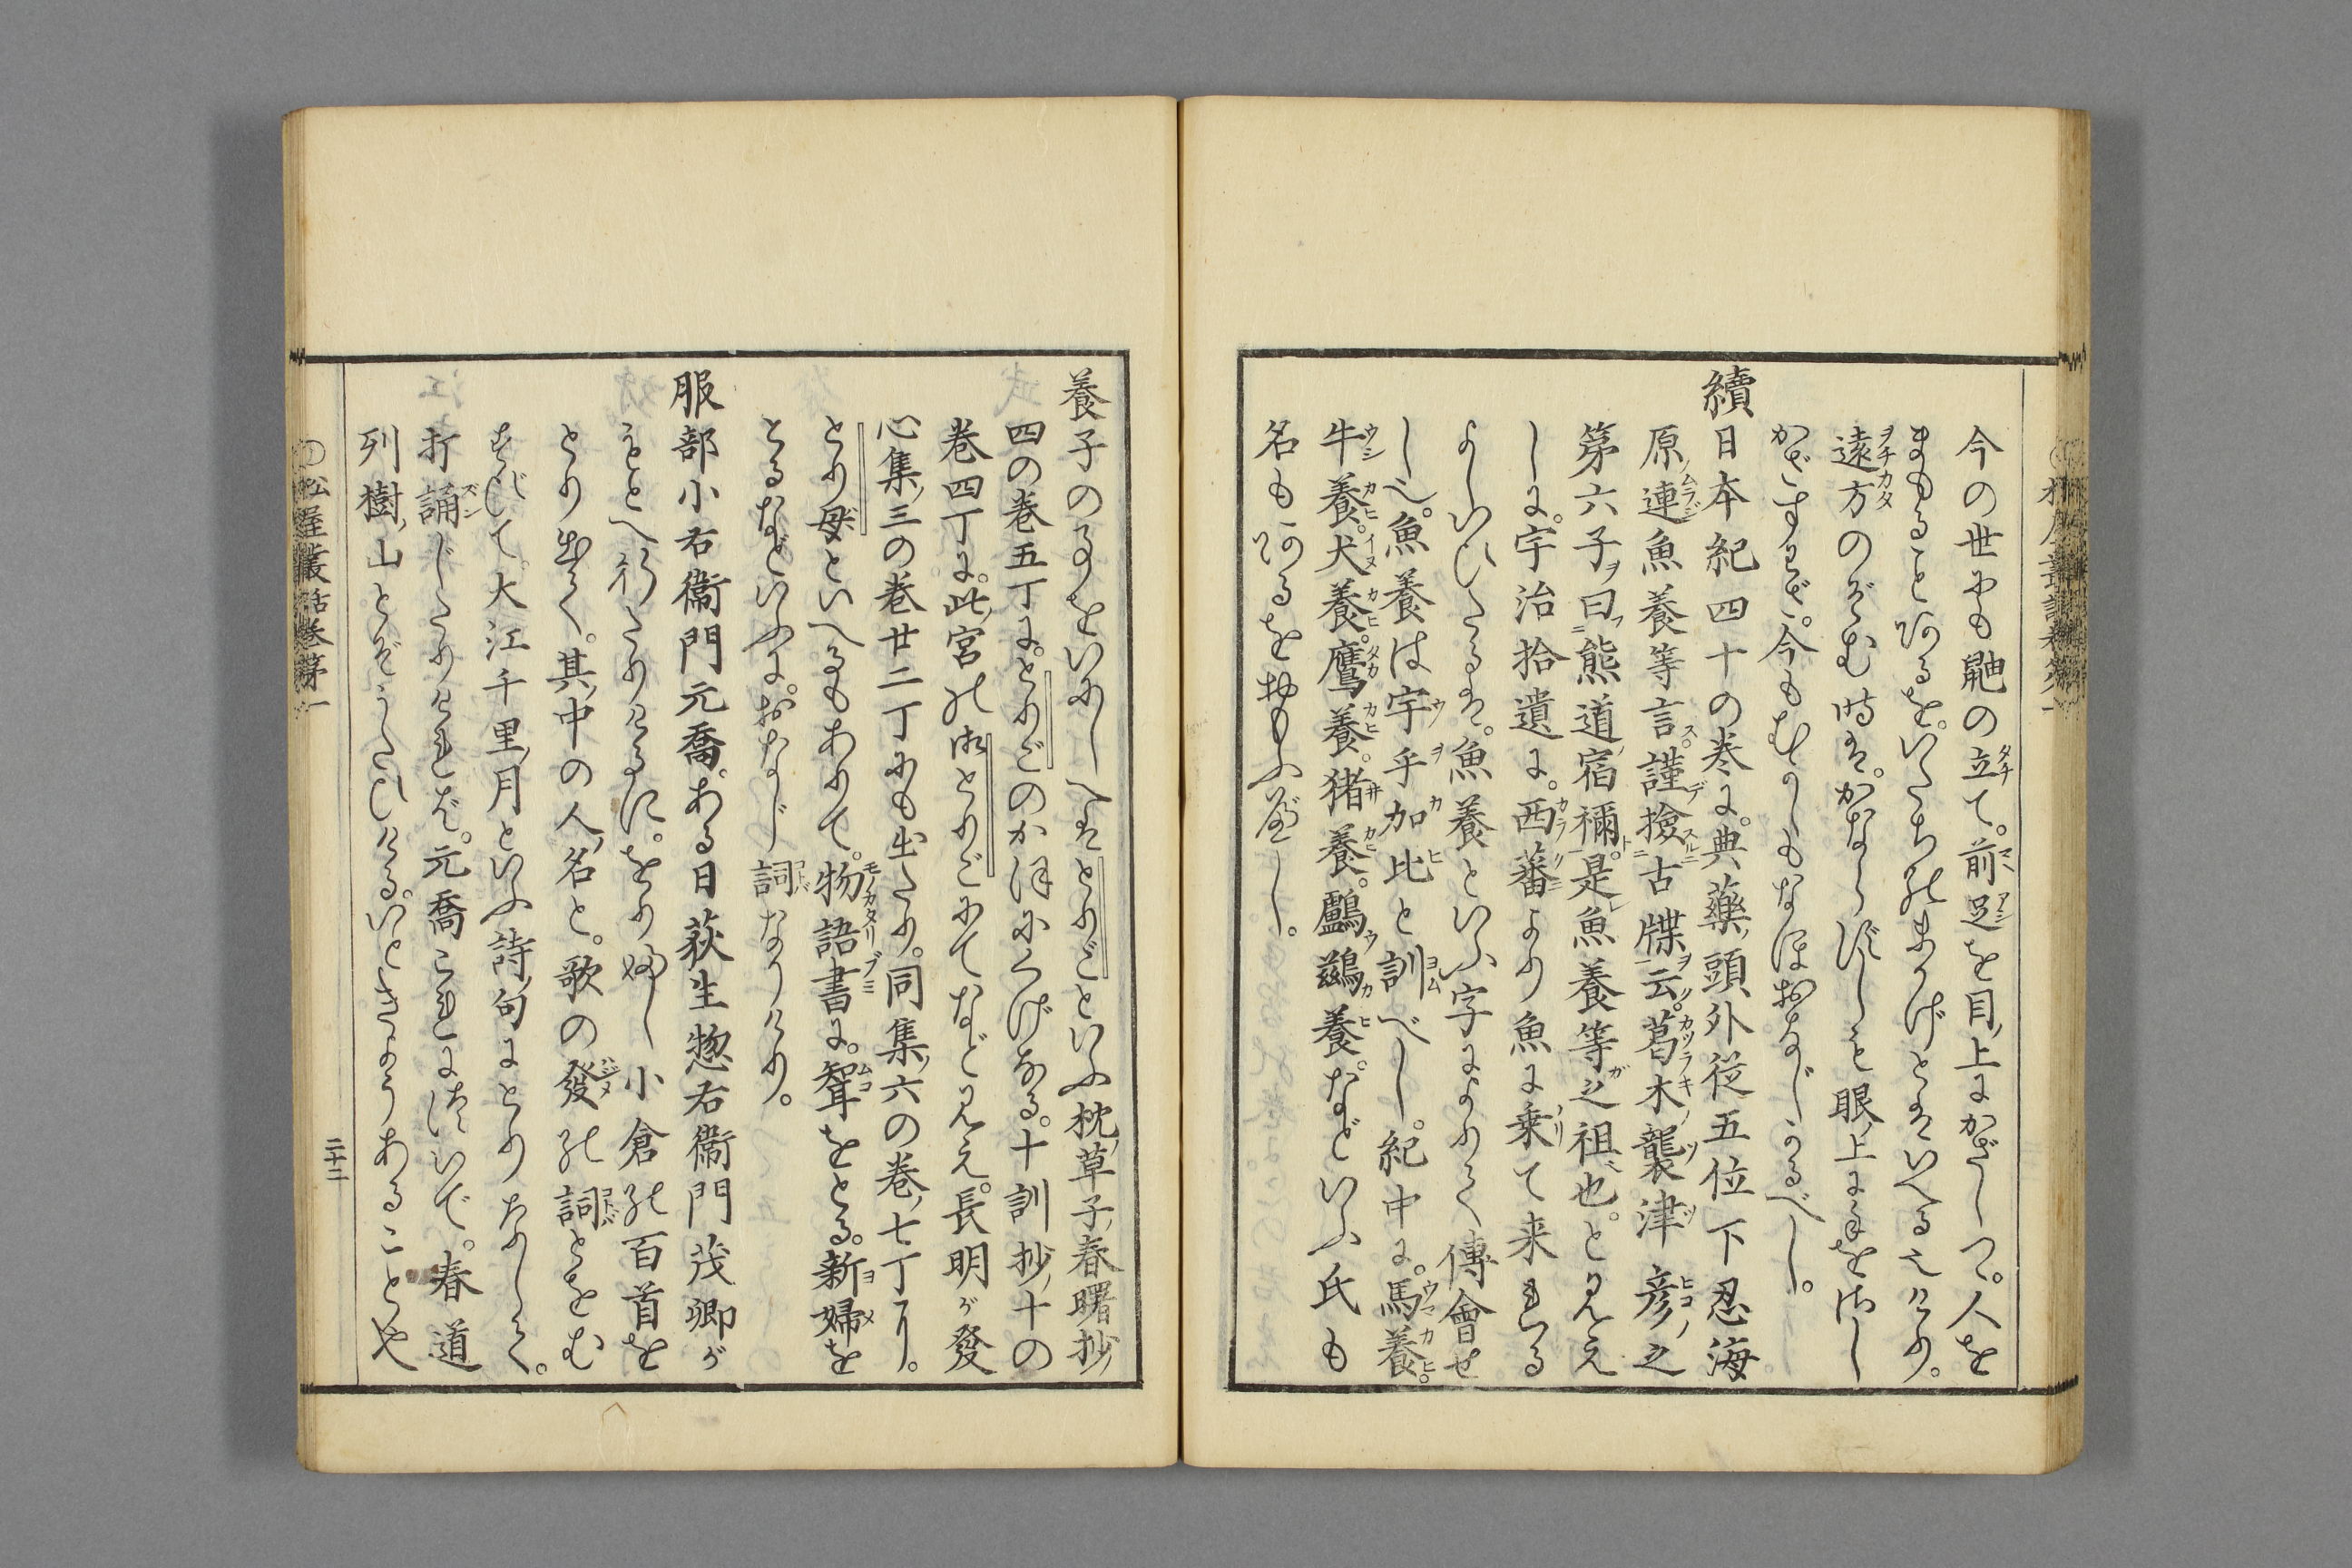 今の世にも鼬の立て。前足を目ノ上にかざしつ。人を
まもることあるを。いたちのまかげとはいへるなりけり。
遠方のぞむ時は。かならずしも眼ノ上に手をさし
かざすわざ。今もむかしもなほおなじかるべし。
續日本紀四十の巻に。典藥ノ頭外従五位下忍海
原ノ連魚養等言。謹撿古牒云。葛木ノ襲津彦之
第六子ヲ曰熊道ノ宿禰。是魚養等之祖也。と見え
しに。宇治拾遺に。西蕃より魚に乗て来れる
よしいひたるは。魚養といふ字によりて傳會せ
し也。魚養は宇乎加比と訓べし。紀中に。馬養。
牛養。犬養。鷹養。猪養。鸕鷀養。などいふ氏も
名もあるをおもふべし。
養子の事をいにしへはとりごといふ枕ノ草子ノ春曙抄ノ
四の巻五丁に。とりごのかほにくげなる。十訓抄ノ十の
巻四丁に。此ノ宮の御とりごにてなど見え。長明が發
心集ノ三の巻廿二丁にも出たり。同集ノ六の巻ノ七丁に。
とり母といへるもありて。物語書に。聟をとる。新婦を
とるなどいふに。おなじ詞なりけり。
服部小右衞門元喬。ある日荻生惣右衞門茂卿が
もとへ行たりけるに。をりふし小倉の百首を
とり出て。其ノ中の人ノ名と。歌の發の詞とをむ
すびて。大江千里ノ月といふ詩ノ句にとりなして。
打誦じたりければ。元喬これについで。春道
列樹ノ山とぞうたひける。いときようあることや
松屋叢話巻第一
二十二